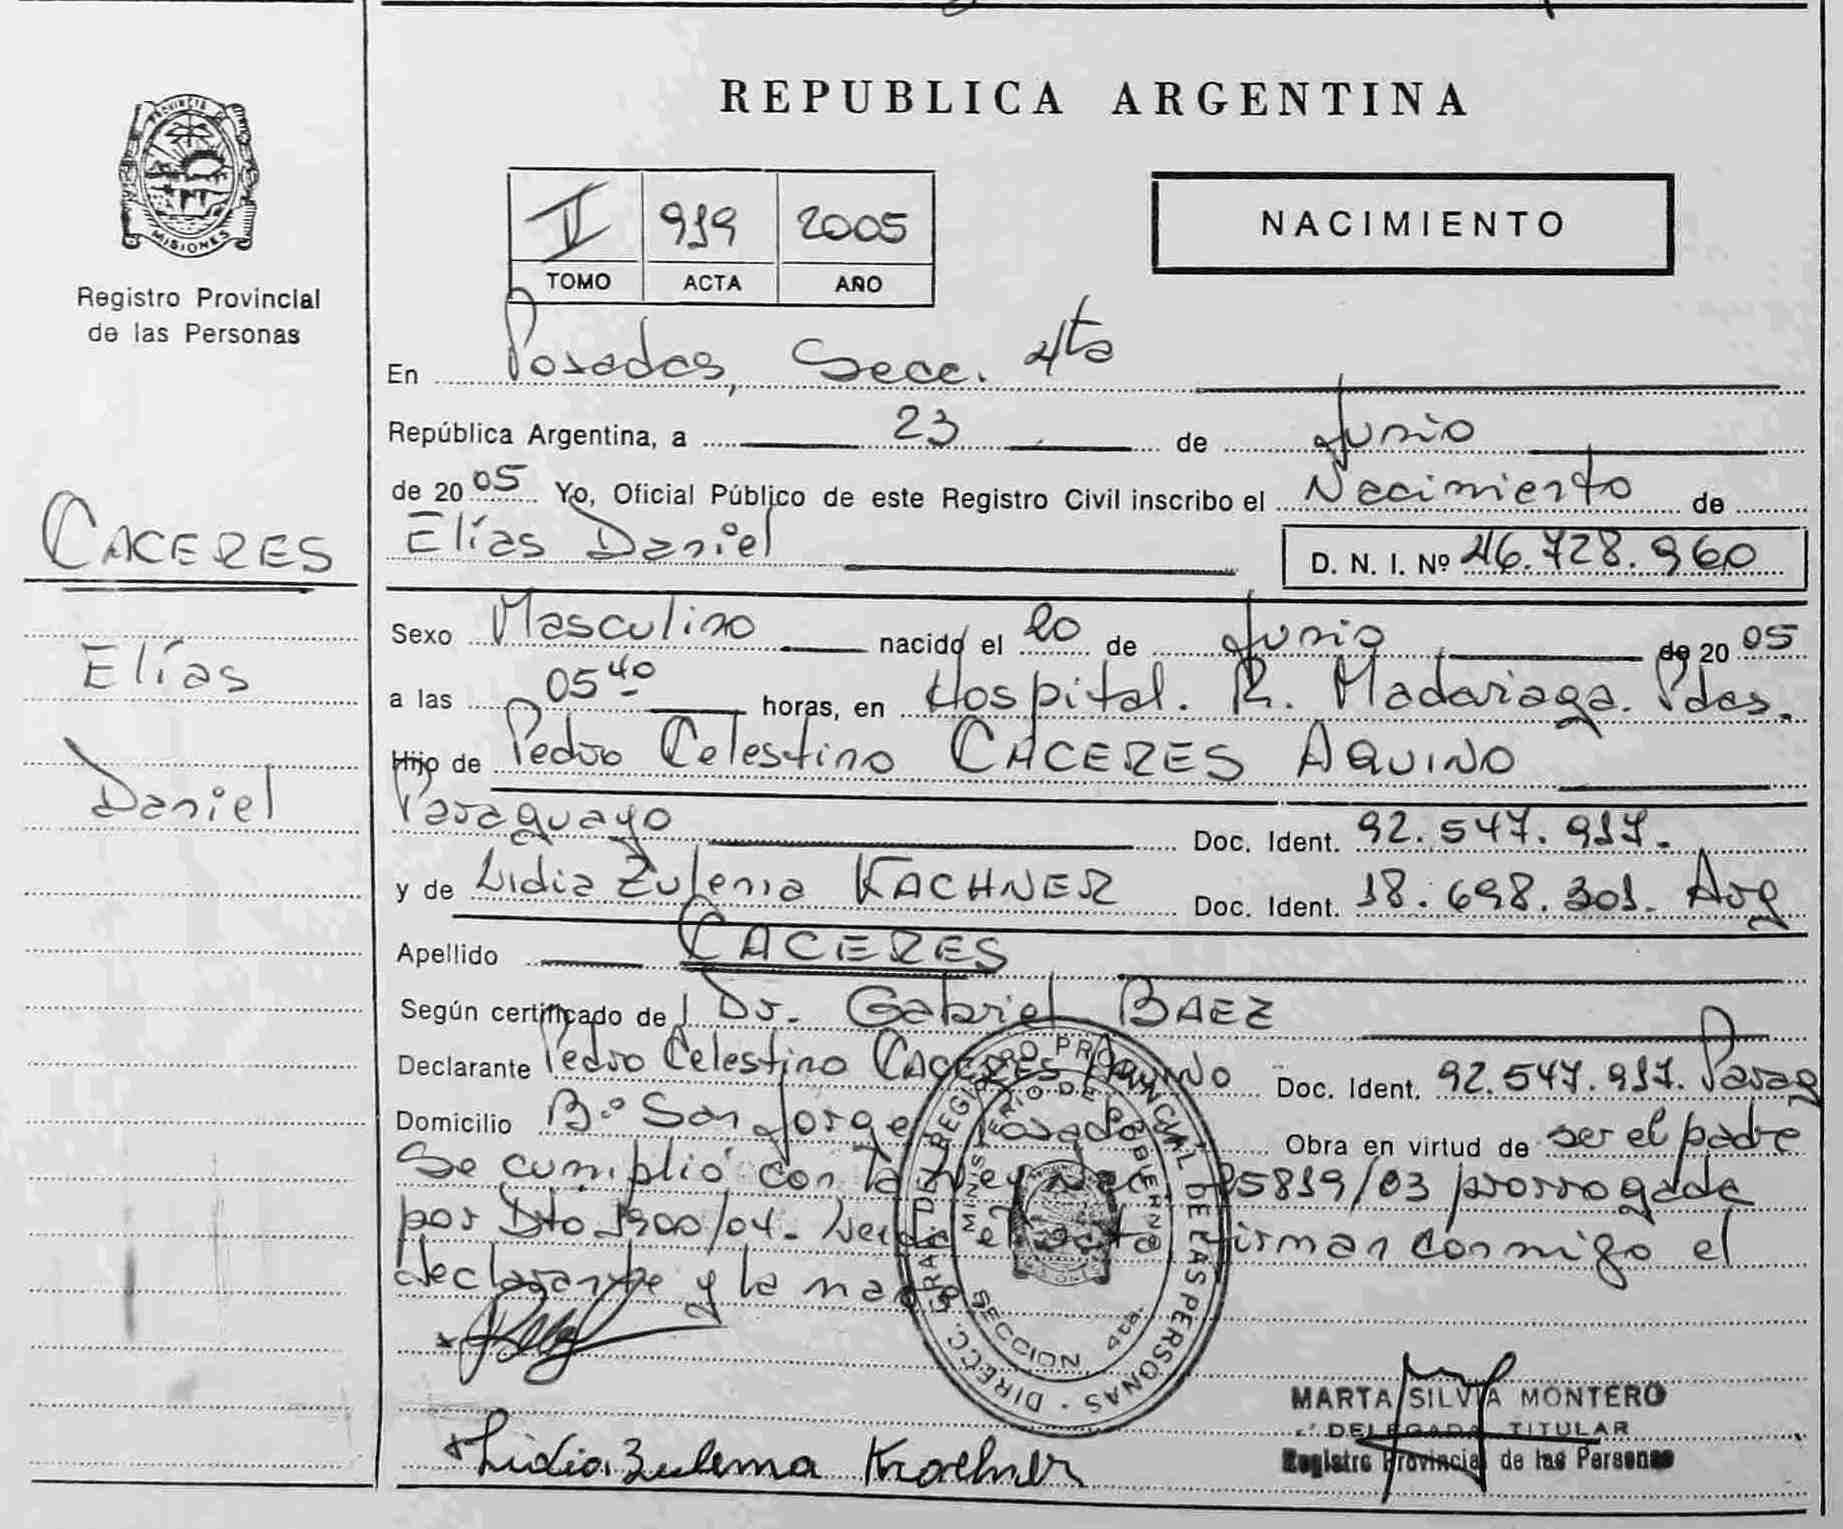 REPUBLICA ARGENTINA
PROVINCIA DE
MISIONES
Registro Provincial
de las Personas
II 919 2005
TOMO ACTA AÑO
NACIMIENTO
En Posadas, Secc. 4ta
República Argentina, a 23 de Junio
de 2005 Yo, Oficial Público de este Registro Civil inscribo el Nacimiento de
CACERES
Elías
Daniel
Elías Daniel D. N. I. Nº 46.728.960
Sexo Masculino nacido el 20 de Junio de 2005
a las 05 40 horas, en Hospital. R. Madariaga. Pdas.
Hijo de Pedro Celestino CACERES AQUINO
Paraguayo Doc. Ident. 92.547.917.
y de Lidia Zulema KACHNER Doc. Ident. 18.698.301. Arg
Apellido CACERES
Según certificado de Dr. Gabriel BAEZ
Declarante Pedro Celestino CACERES AQUINO Doc. Ident. 92.547.917. Parag
Domicilio Bº San Jorge Posadas Obra en virtud de ser el padre
Se cumplió con la Ley Nac. 25819/03 prorrogada
por Dto 1900/04. Leida el acta firman conmigo el
declarante y la madre
DIRECC. GRAL. DEL REGISTRO PROVINCIAL DE LAS PERSONAS
MINISTERIO DE GOBIERNO
SECCION 4ta.
Lidia Zulema
MARTA SILVIA MONTERO
DELEGADA TITULAR
Registro Provincial de las Personas